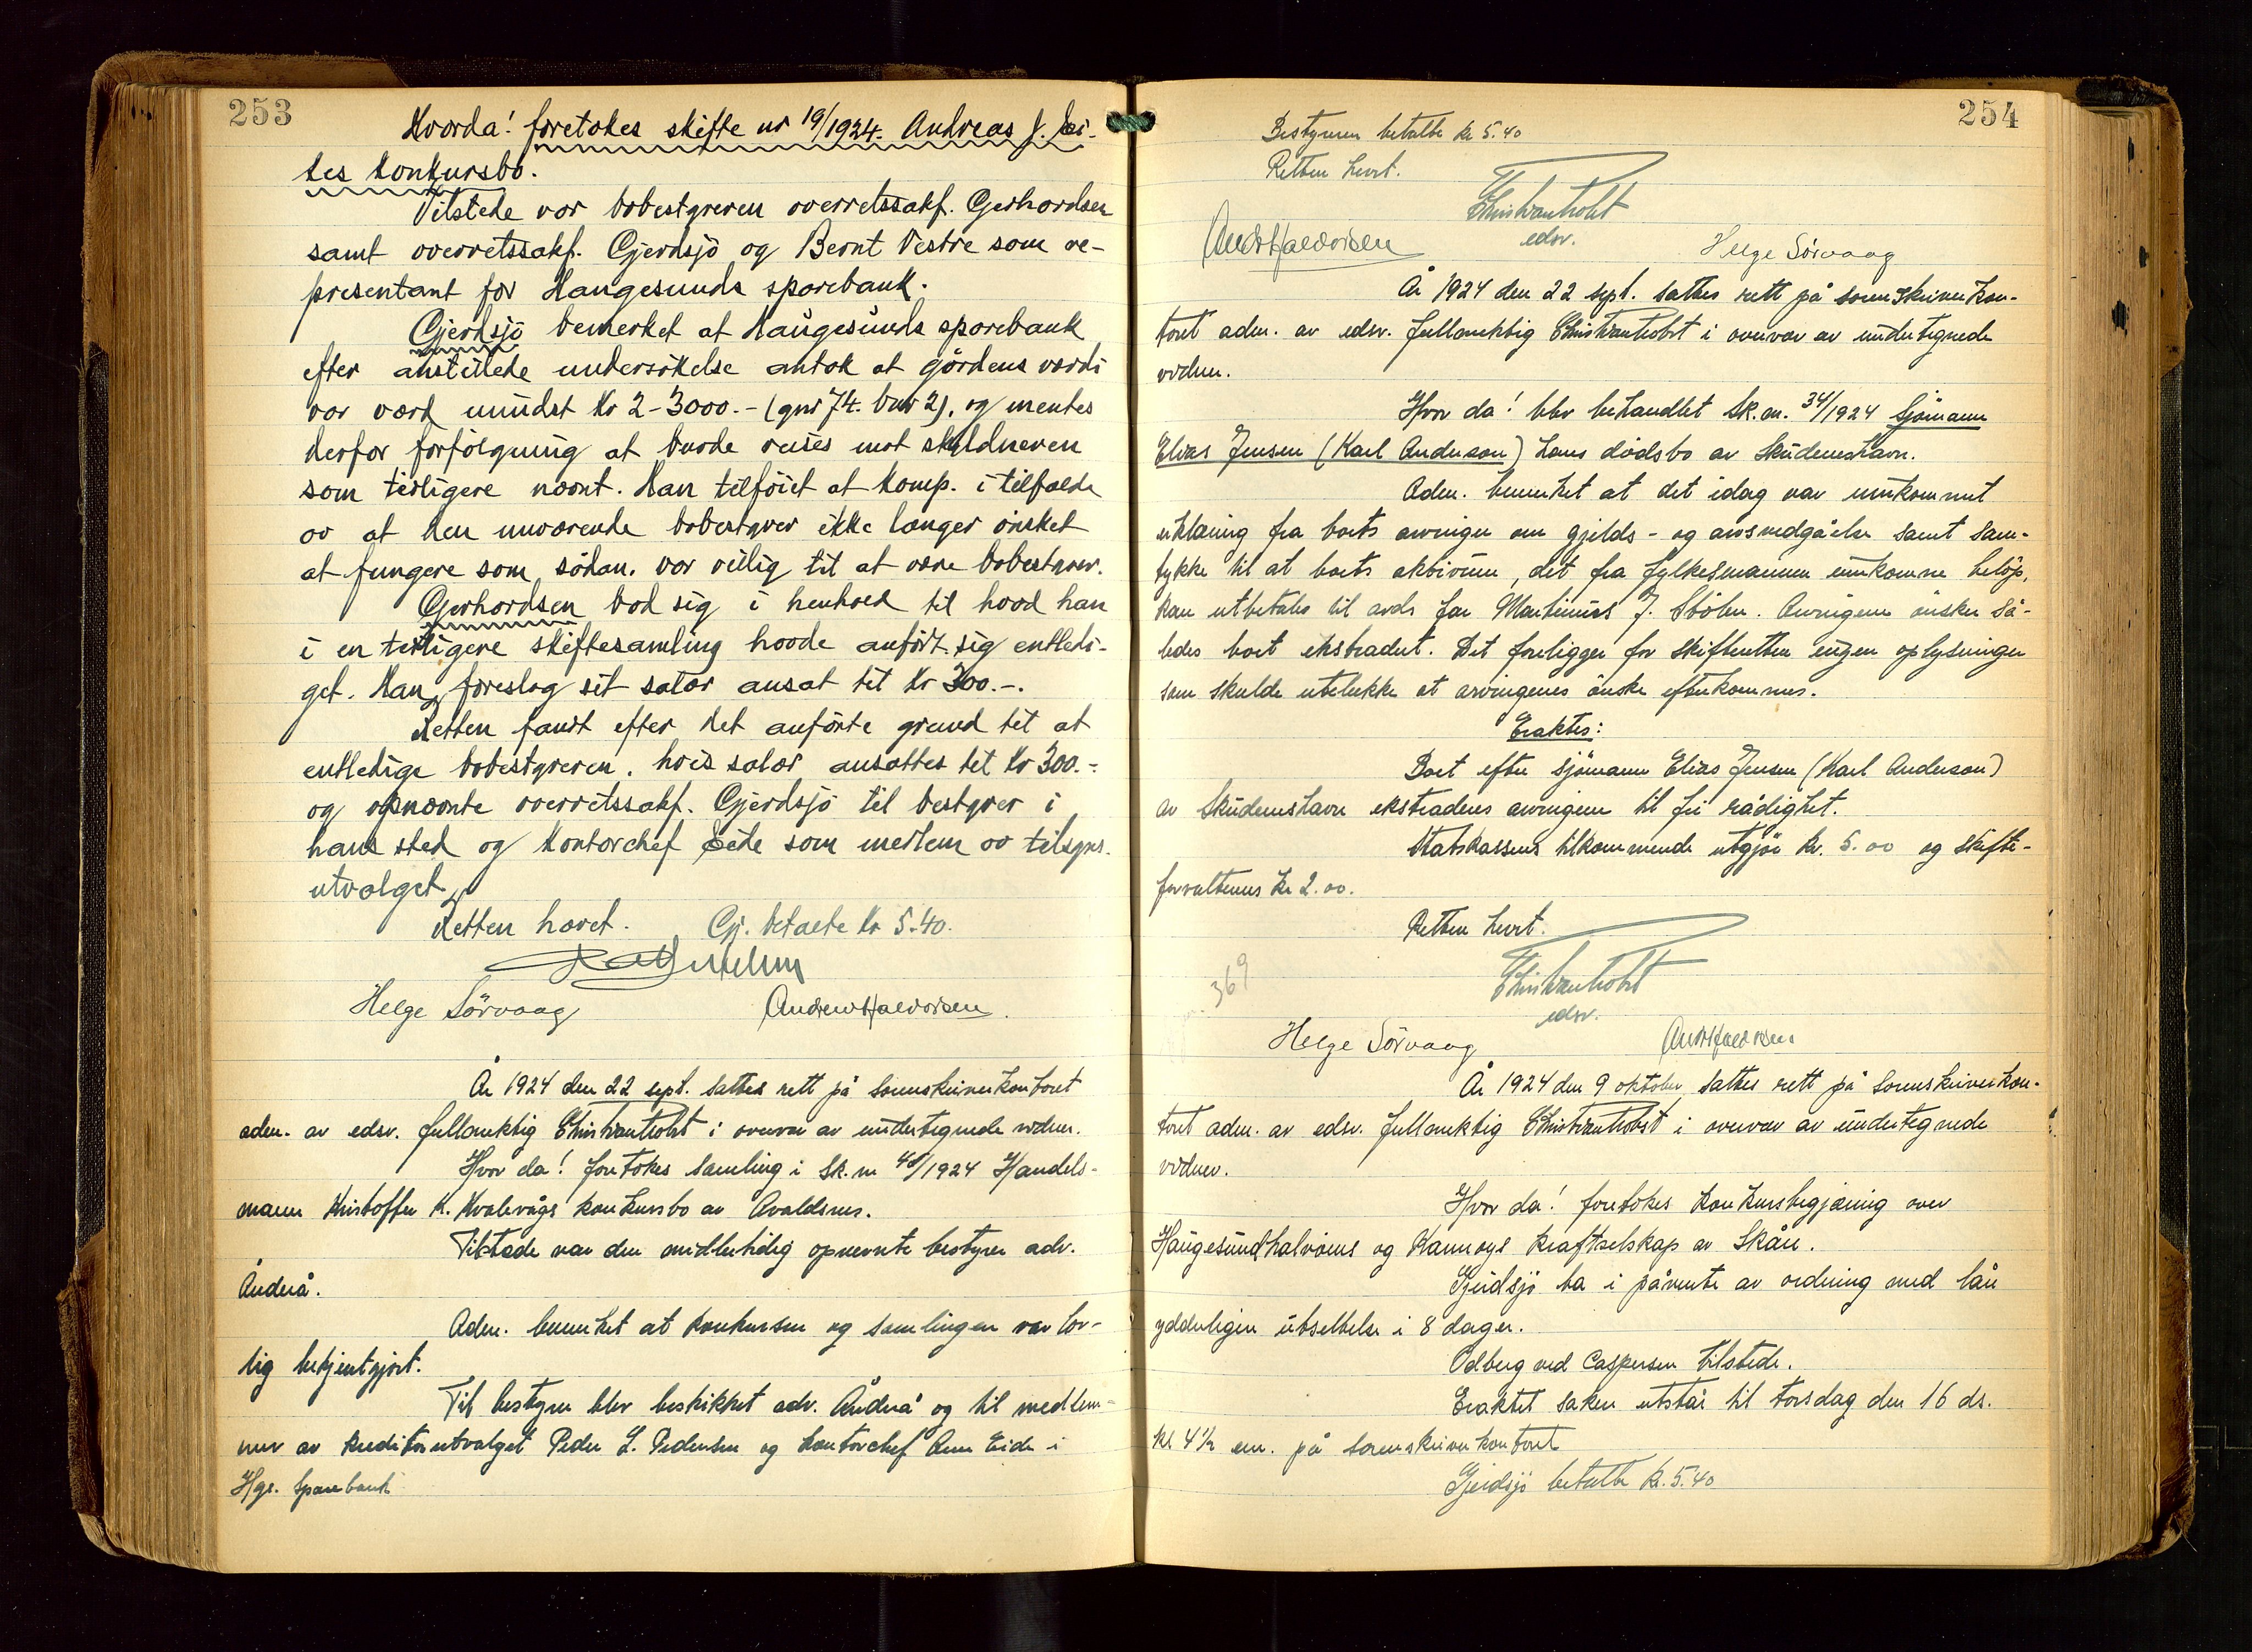 253
Hvorda! foretokes skifte nr 19/1924. Andreas J.
des konkursbo.
Tilstede var bobestyreren overretssakf. Gerhardsen
samt overretssakf. Gjerdsjö og Bernt Vestre som re-
presentant for Haugesunds sparebank.
Gjerdsjö bemerket at Haugesunds sparebank
efter anstillede undersökelse antok at gårdens værdi
var værd mindst kr 2-3000.- (gnr 74. bnr 2), og mentes
derfor forfölgning at burde reises mot skyldneren
som tidligere nævnt. Han tilföiet at komp. i tilfælde
av at den nuværende bobestyrer ikke længer önsket
at fungere som sådan. var villig til at være bobestyrer.
Gerhardsen bad sig i henhold til hvad han
i en tidligere skiftesamling havde anfört sig entledi-
get. Han foreslog sit salær ansat til kr 300.-.
Retten fandt efter det anförte grund til at
entledige bobestyreren. hvis salær ansattes til kr 300.-
og opnævnte overretssakf. Gjerdsjö til bestyrer i
hans sted og kontorchef Eide som medlem av tilsyns-
utvalget.
Retten hævet. Gj. betalte kr 5.40.
Helge Sörvaag Andrew Halvorsen.
År 1924 den 22 sept. sattes rett på sorenskriverkontoret
adm. av edsv. fullmektig Christian Holst i overvær av undertegnede vidner.
Hvor da! foretokes samling i Sk. nr 48/1924 Handels-
mann Kristoffer K. Kvalevågs konkursbo av Avaldsnes.
Tilstede var den midlertidig opnevnte bestyrer adv.
Åndrå.
Adm. bemerket at konkursen og samlingen var lov-
lig bekjentgjort.
Til bestyrer blev beskikket adv. Åndrå og til medlem-
mer av kreditorutvalget Peder L. Pedersen og kontorchef Arne Eide i
Hgs. Sparebank
254
Bestyreren betalte kr 5.40
Retten hevet.
Christian Holst
edsv.
Andr Halvorsen Helge Sörvaag
År 1924 den 22 sept. sattes rett på sorenskriverkon-
toret adm. av edsv. fullmektig Christian Holst i overvær av undertegnede
vidner.
Hvor da! blev behandlet Sk. nr. 34/1924 Sjömann
Elias Jensen (Karl Anderson) hans dödsbo av Skudeneshavn.
Adm. bemerket at det idag var innkommet
erklæring fra boets arvinger om gjelds- og arvsvedgåelse samt sam-
tykke til at boets aktivum, det fra fylkesmannen innkomne belöp,
kan utbetales til avds far Martinius J. Stölen. Arvingene önsker så-
ledes boet ekstradert. Det foreligger for skifteretten ingen oplysninger
som skulde utelukke at arvingenes önske efterkommes.
Eraktes:
Boet efter sjömann Elias Jensen (Karl Anderson)
av Skudeneshavn ekstraderes arvingene til fri rådighet.
Statskassens tilkommende utgjör kr. 5.00 og skifte-
forvalterens kr 2.00.
Retten hevet.
369
Christian Holst
edsv.
Helge Sörvaag Andr Halvorsen
År 1924 den 9 oktober sattes rett på sorenskriverkon-
toret adm. av edsv. fullmektig Christian Holst i overvær av undertegnede
vidner.
Hvor da! foretokes konkursbegjæring over
Haugesundhalvöens og Karmöys kraftselskap av Skåre.
Gjerdsjö ba i påvente av ordning med lån
ydderligere utsettelse i 8 dager.
Odberg ved Caspersen tilstede.
Eraktet saken utstår til torsdag den 16 ds.
kl 4½ em. på sorenskriverkontoret
Gjerdsjö betalte kr. 5.40